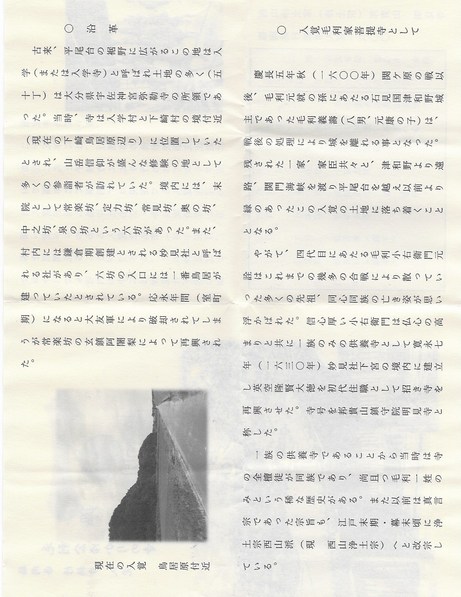 ○ 沿革
古来、平尾台の裾野に広がるこの地は入
学(または入学寺)と呼ばれ土地の多く(五
十丁)は大分県宇佐神宮弥勒寺の所領であ
った。当時、寺は入学村と下崎村の境付近
(現在の下崎鳥居原辺り)に位置していた
とされ、山岳信仰が盛んな修験の地として
多くの参詣者が訪れていた。境内には、末
院として常楽坊、定力坊、常見坊、奥の坊、
中之坊、泉の坊という六坊があった。また、
村内には鎌倉期創建とされる妙見社と呼ば
れる社があり、六坊の入口には一番鳥居が
建っていたとされている。応永年間(室町
期)になると大友軍により破却されてしま
うが常楽坊の玄鎮阿闍梨によって再興され
た。
現在の入覚 鳥居原付近
○ 入覚毛利家菩提寺として
慶長五年秋(一六〇〇年)関ケ原の戦以
後、毛利元就の孫にあたる石見国津和野城
主であった毛利義壽(八男、元康の子)は、
戦後の処理により城を離れる事となった。
残された一家、家臣共々と、津和野より遠
路、関門海峡を渡り平尾台を越え以前より
縁のあったこの入覚の土地に落ち着くこと
となる。
やがて、四代目にあたる毛利小右衛門元
詮はこれまでの幾多の合戦により散ってい
った多くの先祖、同心同族の亡き姿が思い
浮かばれた。信心厚い小右衛門は仏心の高
まりと共に一族のみの供養寺として寛永七
年(一六三〇年)妙見社下宮の境内に建立
し英空隆賢大徳を初代住職として招き寺を
再興させた。寺号を邦貴山鎮守院明見寺と
称した。
一族の供養寺であることから当時は寺
の全檀徒が同族であり、尚且つ毛利一姓の
みという稀な歴史がある。また以前は真言
宗であった宗旨も、江戸末期・幕末頃に浄
土宗西山派(現 西山浄土宗)へと改宗し
ている。